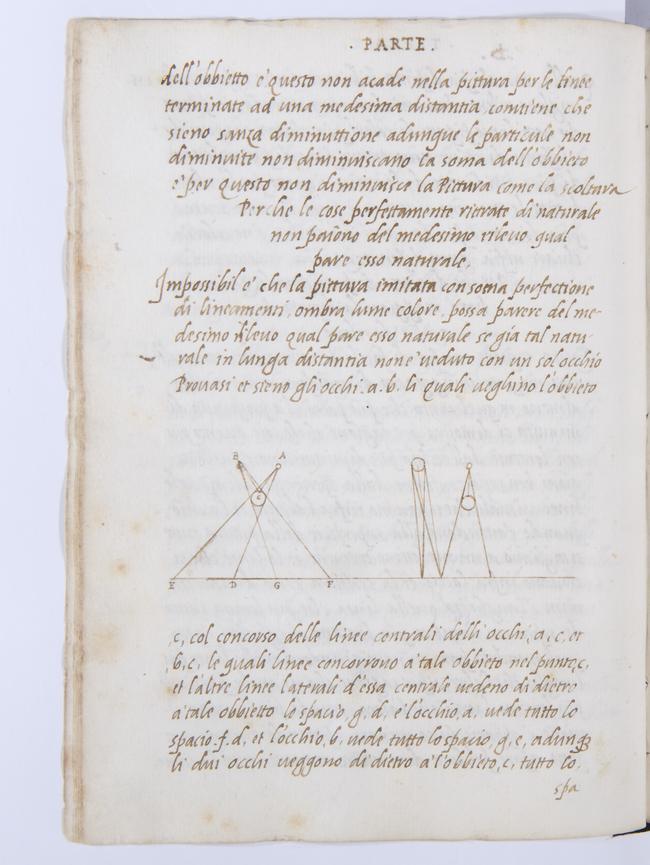 . PARTE .
dell'obbietto e' questo non acade nella pittura per le linee
terminate ad una medesima distantia conviene che
sieno sanza diminuttione adunque le particule non
diminuite non diminuiscano la soma dell'obbieto
e' per questo non diminuisce la Pictura come la scoltura
Perche le cose perfettamente ritrate di naturale
non paiono del medesimo rilevo qual
pare esso naturale.
Impossibil e' che la pittura imitata con soma perfectione
di lineamenti, ombra lume colore, possa parere del me-
desimo rilevo qual pare esso naturale se gia tal natu-
rale in lunga distantia non e' veduto con un sol occhio
Provasi et sieno gli occhi .a.b. li quali veghino l'obbieto
B A
C
E D G F
,c, col concorso delle linee centrali delli occhi ,a,c, et
,b,c, le quali linee concorrono a' tale obbieto nel punto,c,
et l'altre linee laterali d'essa centrale vedeno di dietro
a' tale obbietto lo spacio ,g,d, e l'occhio ,a, vede tutto lo
spacio .f.d, et l'occhio ,b, vede tutto lo spacio ,g,e, adunqȝ
li dui occhi veggono di dietro a' l'obbieto ,c, tutto lo,
spa